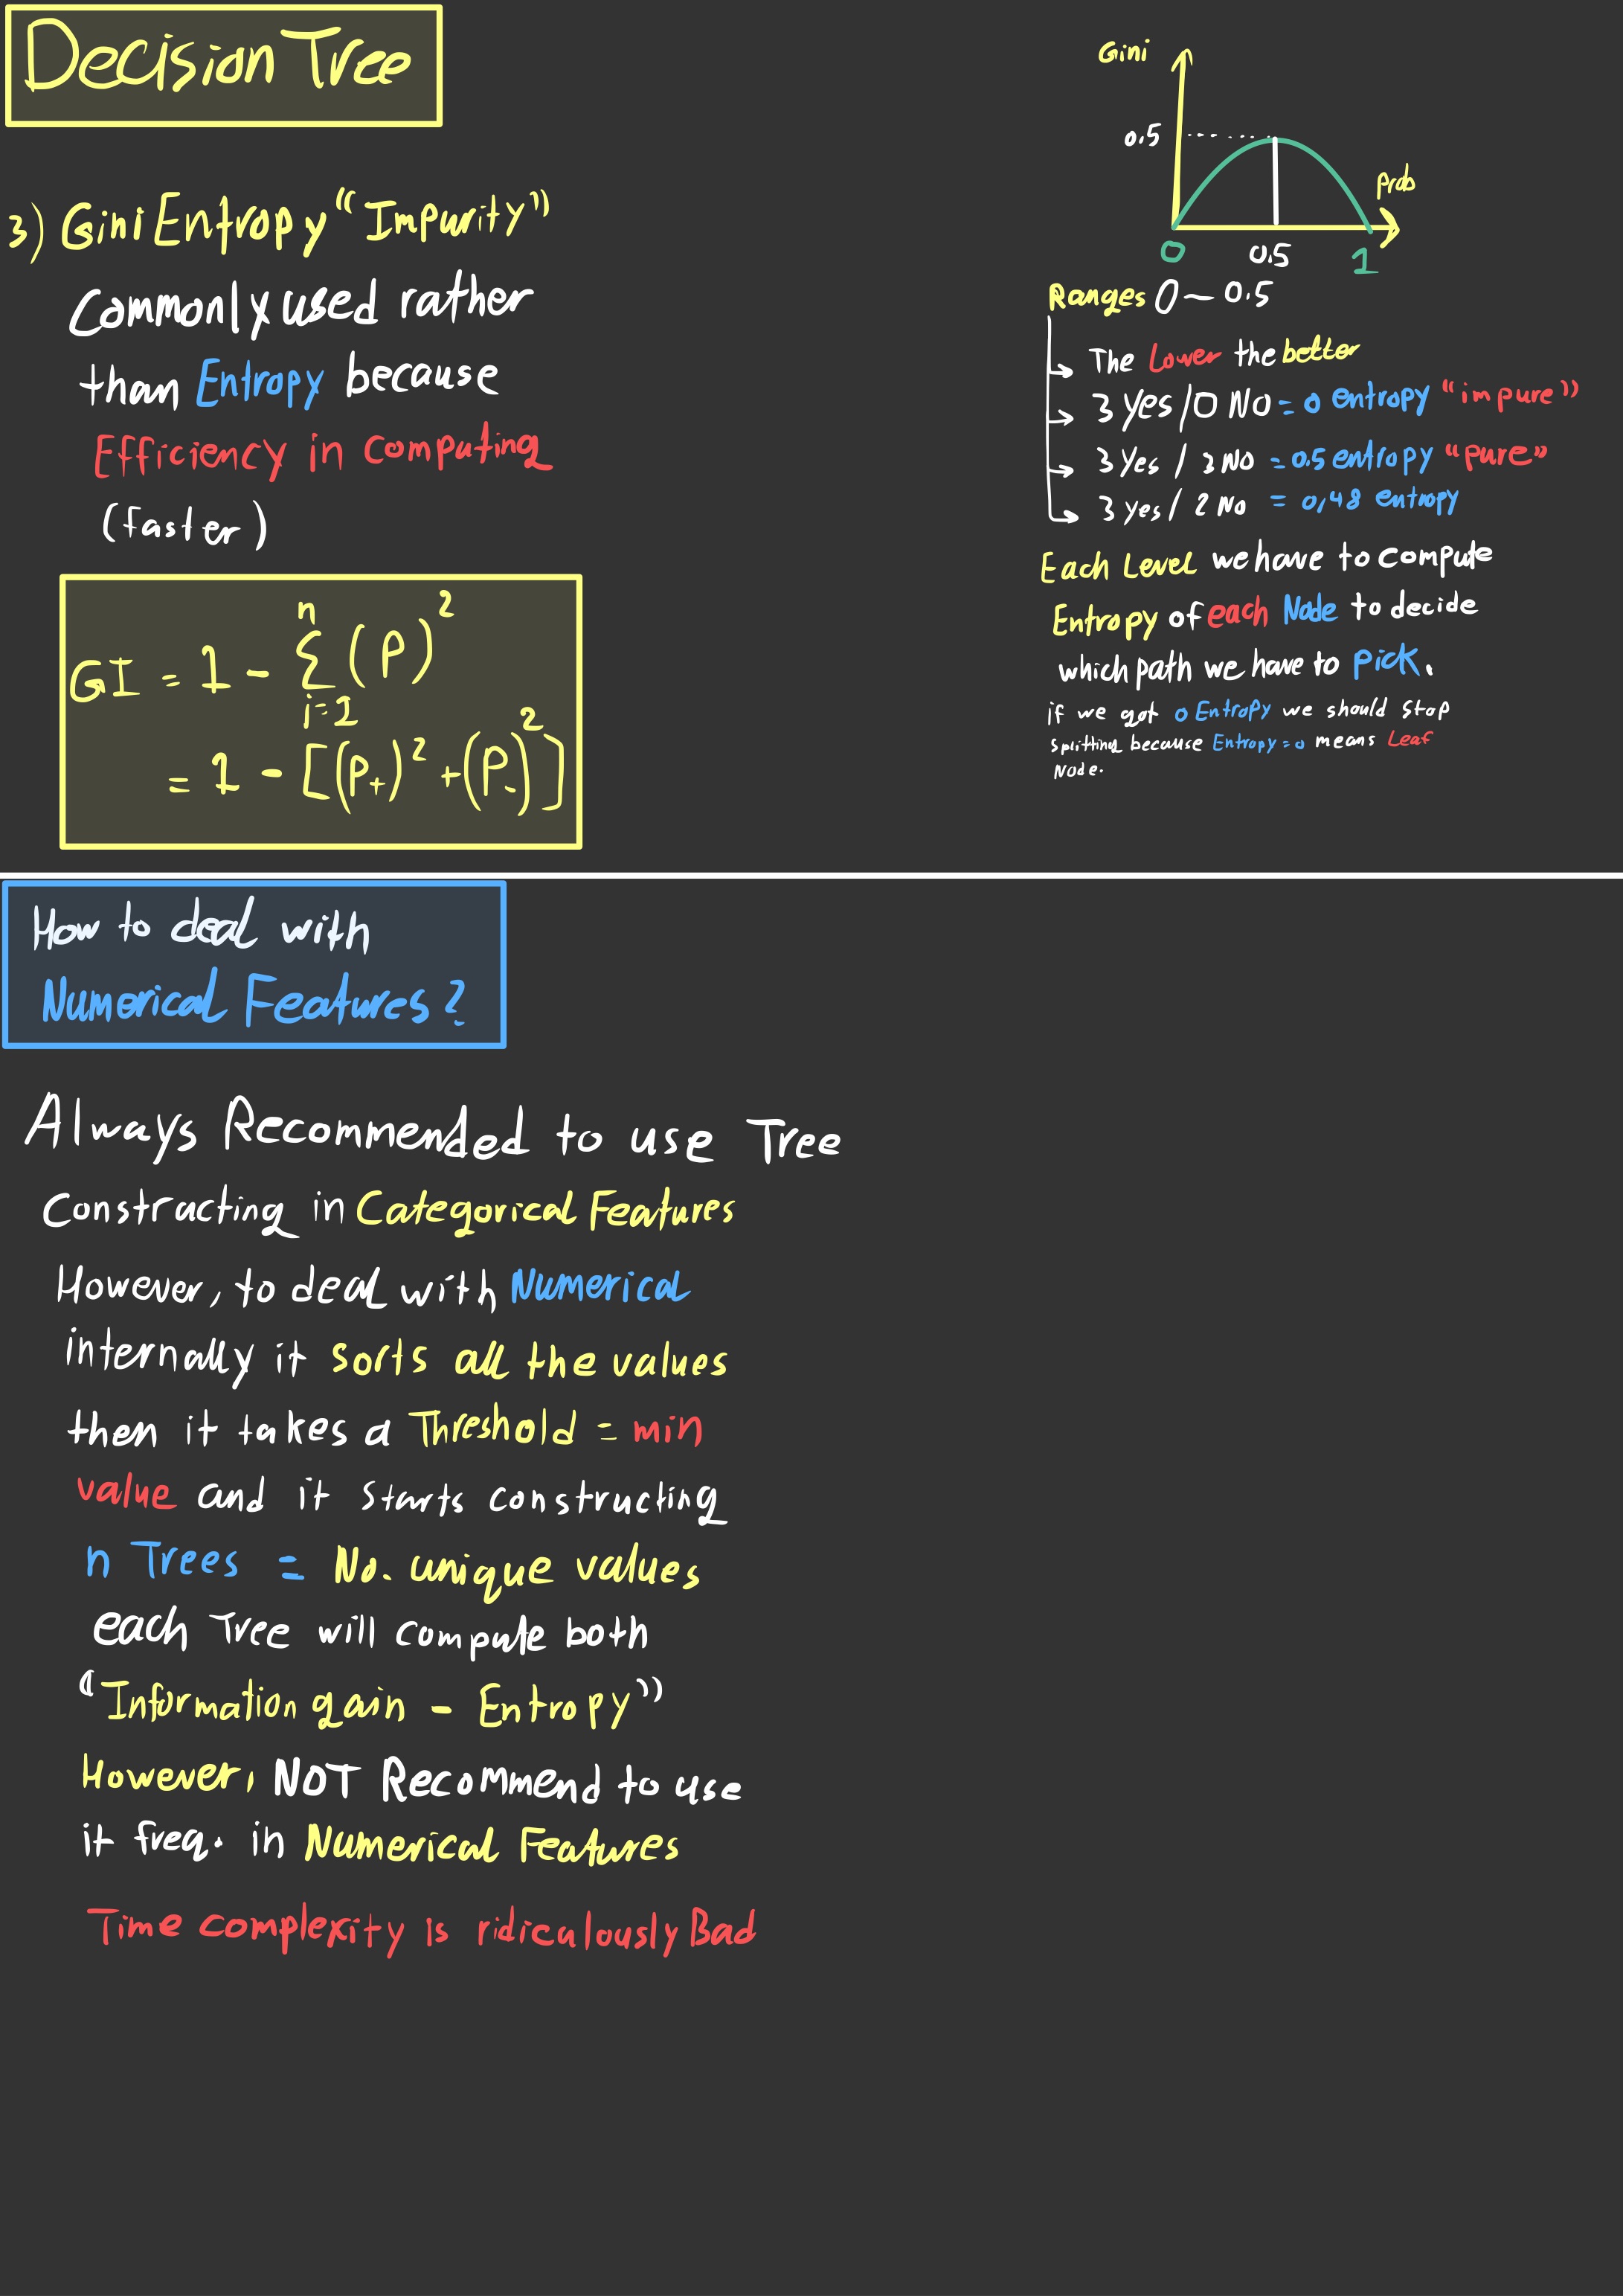 Decision Tree
3) Gini Entropy "Impurity"
Commonly used rather
than Entropy because
Efficiency in computing
(faster)
GI = 1 - Σ (P)²
n
i=1
= 1 - [(P+)² + (P-)²]
Gini
0.5
Prob
0
0.5
1
Ranges 0 — 0.5
The Lower the better
3 Yes / 0 No = 0 entropy "impure"
3 Yes / 3 No = 0.5 entropy "pure"
3 yes / 2 No = 0.48 entropy
Each Level we have to compute
Entropy of each Node to decide
which path we have to Pick.
if we got 0 Entropy we should stop
splitting because Entropy = 0 means Leaf
Node.
How to deal with
Numerical Features?
Always Recommended to use Tree
Constracting in Categorical Features
However, to deal with Numerical
internally it sorts all the values
then it takes a Threshold = min
value and it starts constructing
n Trees = No. unique values
each Tree will compute both
"Information gain - Entropy"
However, NOT Recommend to use
it freq. in Numerical Features
Time complexity is ridiculously Bad